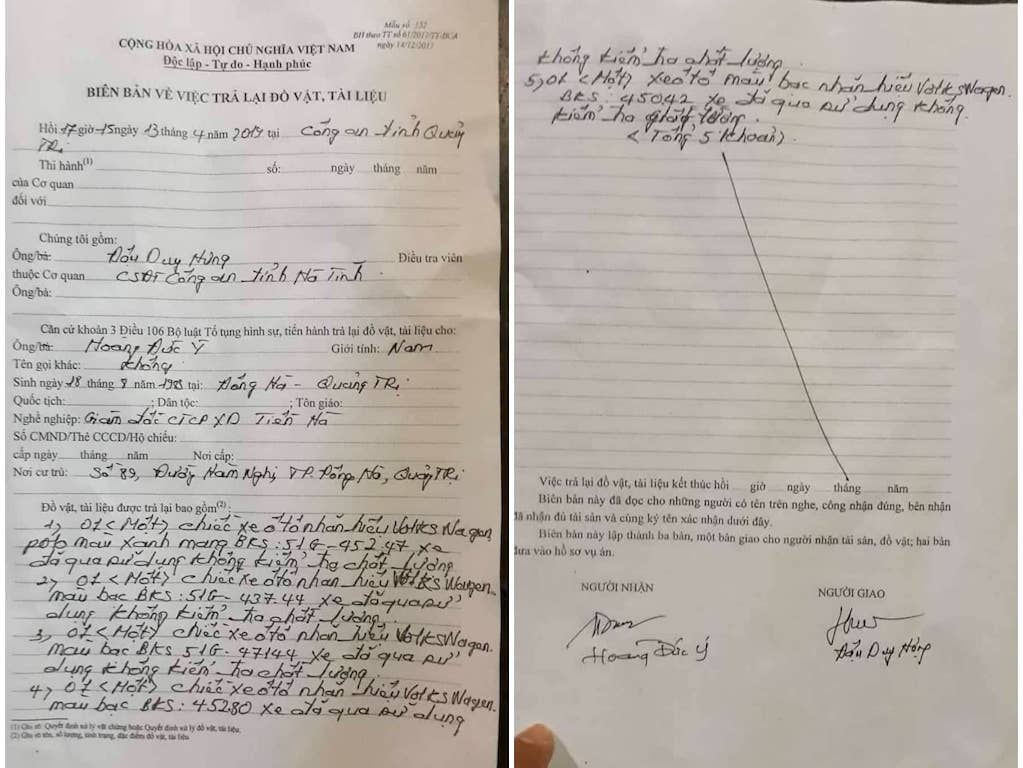 Mẫu số 132
BH theo TT số 61/2017/TT-BCA
ngày 14/12/2017
CỘNG HÒA XÃ HỘI CHỦ NGHĨA VIỆT NAM
Độc lập - Tự do - Hạnh phúc
BIÊN BẢN VỀ VIỆC TRẢ LẠI ĐỒ VẬT, TÀI LIỆU
Hồi 17 giờ 15 ngày 13 tháng 4 năm 2019 tại Công an tỉnh Quảng
Trị
Thi hành(1) số: ngày tháng năm
của Cơ quan
đối với
Chúng tôi gồm:
Ông/bà: Đấu Duy Hưng Điều tra viên
thuộc Cơ quan CSĐT Công an tỉnh Hà Tĩnh
Ông/bà:
Căn cứ khoản 3 Điều 106 Bộ luật Tố tụng hình sự, tiến hành trả lại đồ vật, tài liệu cho:
Ông/bà: Hoàng Đức Ý Giới tính: Nam
Tên gọi khác: Không
Sinh ngày 18 tháng 8 năm tại: Đông Hà - Quảng Trị
Quốc tịch: ; Dân tộc: ; Tôn giáo:
Nghề nghiệp: Giám đốc CTCP XD Tiến Hà
Số CMND/Thẻ CCCD/Hộ chiếu:
cấp ngày tháng năm Nơi cấp:
Nơi cư trú: Số 89, Đường Hàm Nghi, TP. Đông Hà, Quảng Trị
Đồ vật, tài liệu được trả lại bao gồm(2):
1, 01 <Một> chiếc xe ô tô nhãn hiệu Volks Wagen
polo màu xanh mang BKS: 51G-452.47 xe
đã qua sử dụng không kiểm tra chất lượng
2, 01 <Một> chiếc xe ô tô nhãn hiệu Volks Wagen.
màu bạc BKS: 51G-437.44 xe đã qua sử
dụng không kiểm tra chất lượng.
3, 01 <Một> chiếc xe ô tô nhãn hiệu VolksWagen.
màu bạc BKS 51G-47144 xe đã qua sử
dụng không kiểm tra chất lượng.
4, 01 <Một> chiếc xe ô tô nhãn hiệu VolksWagen.
màu bạc BKS: 45280 xe đã qua sử dụng
(1) Ghi rõ: Quyết định xử lý vật chứng hoặc Quyết định xử lý đồ vật, tài liệu;
(2) Ghi rõ tên, số lượng, tình trạng, đặc điểm đồ vật, tài liệu
không kiểm tra chất lượng.
5, 01 <Một> xe ô tô màu bạc nhãn hiệu VolksWagen.
BKS: 45042 xe đã qua sử dụng không
kiểm tra lượng.
<Tổng 5 khoản>.
Việc trả lại đồ vật, tài liệu kết thúc hồi giờ ngày tháng năm
Biên bản này đã đọc cho những người có tên trên nghe, công nhận đúng, bên nhận
đã nhận đủ tài sản và cùng ký tên xác nhận dưới đây.
Biên bản này lập thành ba bản, một bản giao cho người nhận tài sản, đồ vật; hai bản
đưa vào hồ sơ vụ án.
NGƯỜI NHẬN
NGƯỜI GIAO
Hoàng Đức Ý
Đấu Duy Hưng